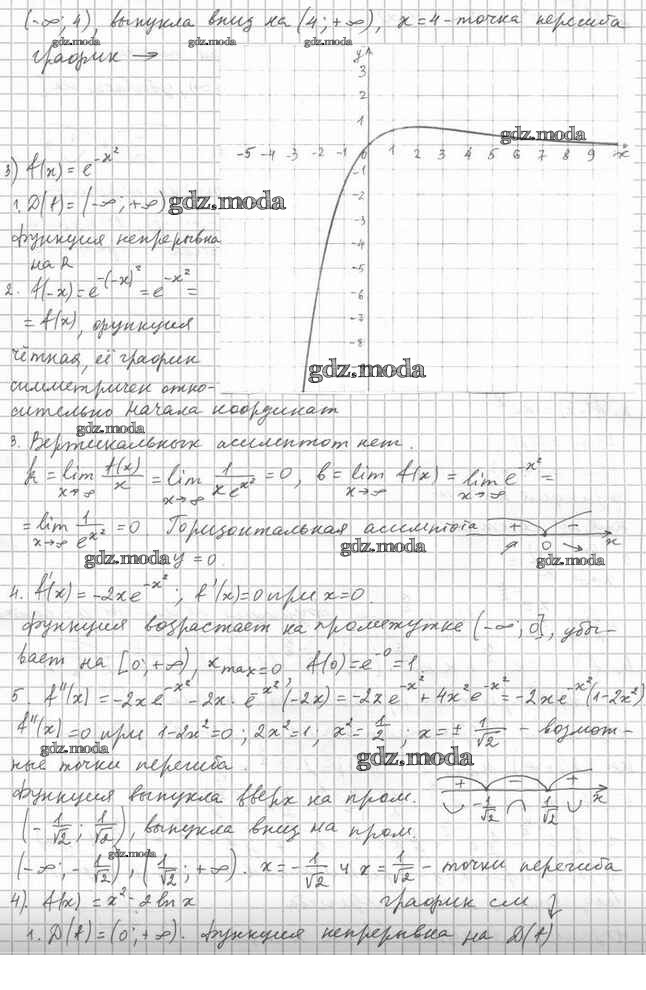 (-∞; 4), выпукла вниз на (4; +∞), x=4 - точка перегиба
gdz.moda gdz.moda gdz.moda
график →
y
3
1
gdz.moda
-5 -4 -3 -2 -1 0 1 2 3 4 5 6 7 8 9 x
-1
-3
-4
-5
-6
-7
-8
gdz.moda
3) f(x) = e^{-x²}
1. D(f) = (-∞; +∞) gdz.moda
функция непрерывна
на R
2. f(-x) = e^{-(-x)²} = e^{-x²} =
= f(x), функция
чётная, её график
симметричен отно-
сительно начала координат
gdz.moda
3. Вертикальных асимптот нет.
k = lim_{x→∞} f(x)/x = lim_{x→∞} 1/(x e^{x²}) = 0, b = lim_{x→∞} f(x) = lim_{x→∞} e^{-x²} =
= lim_{x→∞} 1/e^{x²} = 0 Горизонтальная асимптота
gdz.moda y = 0. gdz.moda
+ -
0 x
gdz.moda
4. f'(x) = -2xe^{-x²}; f'(x)=0 при x=0.
функция возрастает на промежутке (-∞; 0], убы-
вает на [0; +∞), x_{max}=0, f(0)=e^{-0}=1.
5 f''(x) = -2xe^{-x²} - 2x·e^{-x²}(-2x) = -2xe^{-x²} + 4x²e^{-x²} = -2xe^{-x²}(1-2x²)
f''(x)=0 при 1-2x²=0; 2x²=1; x²=1/2; x=±1/√2 - возмож-
gdz.moda gdz.moda
ные точки перегиба.
+ - +
-1/√2 1/√2 x
функция выпукла вверх на пром.
(-1/√2; 1/√2), выпукла вниз на пром.
gdz.moda
(-∞; -1/√2), (1/√2; +∞). x=-1/√2 и x=1/√2 - точки перегиба
4). f(x) = x² - 2 ln x график см ↓
1. D(f) = (0; +∞). Функция непрерывна на D(f)